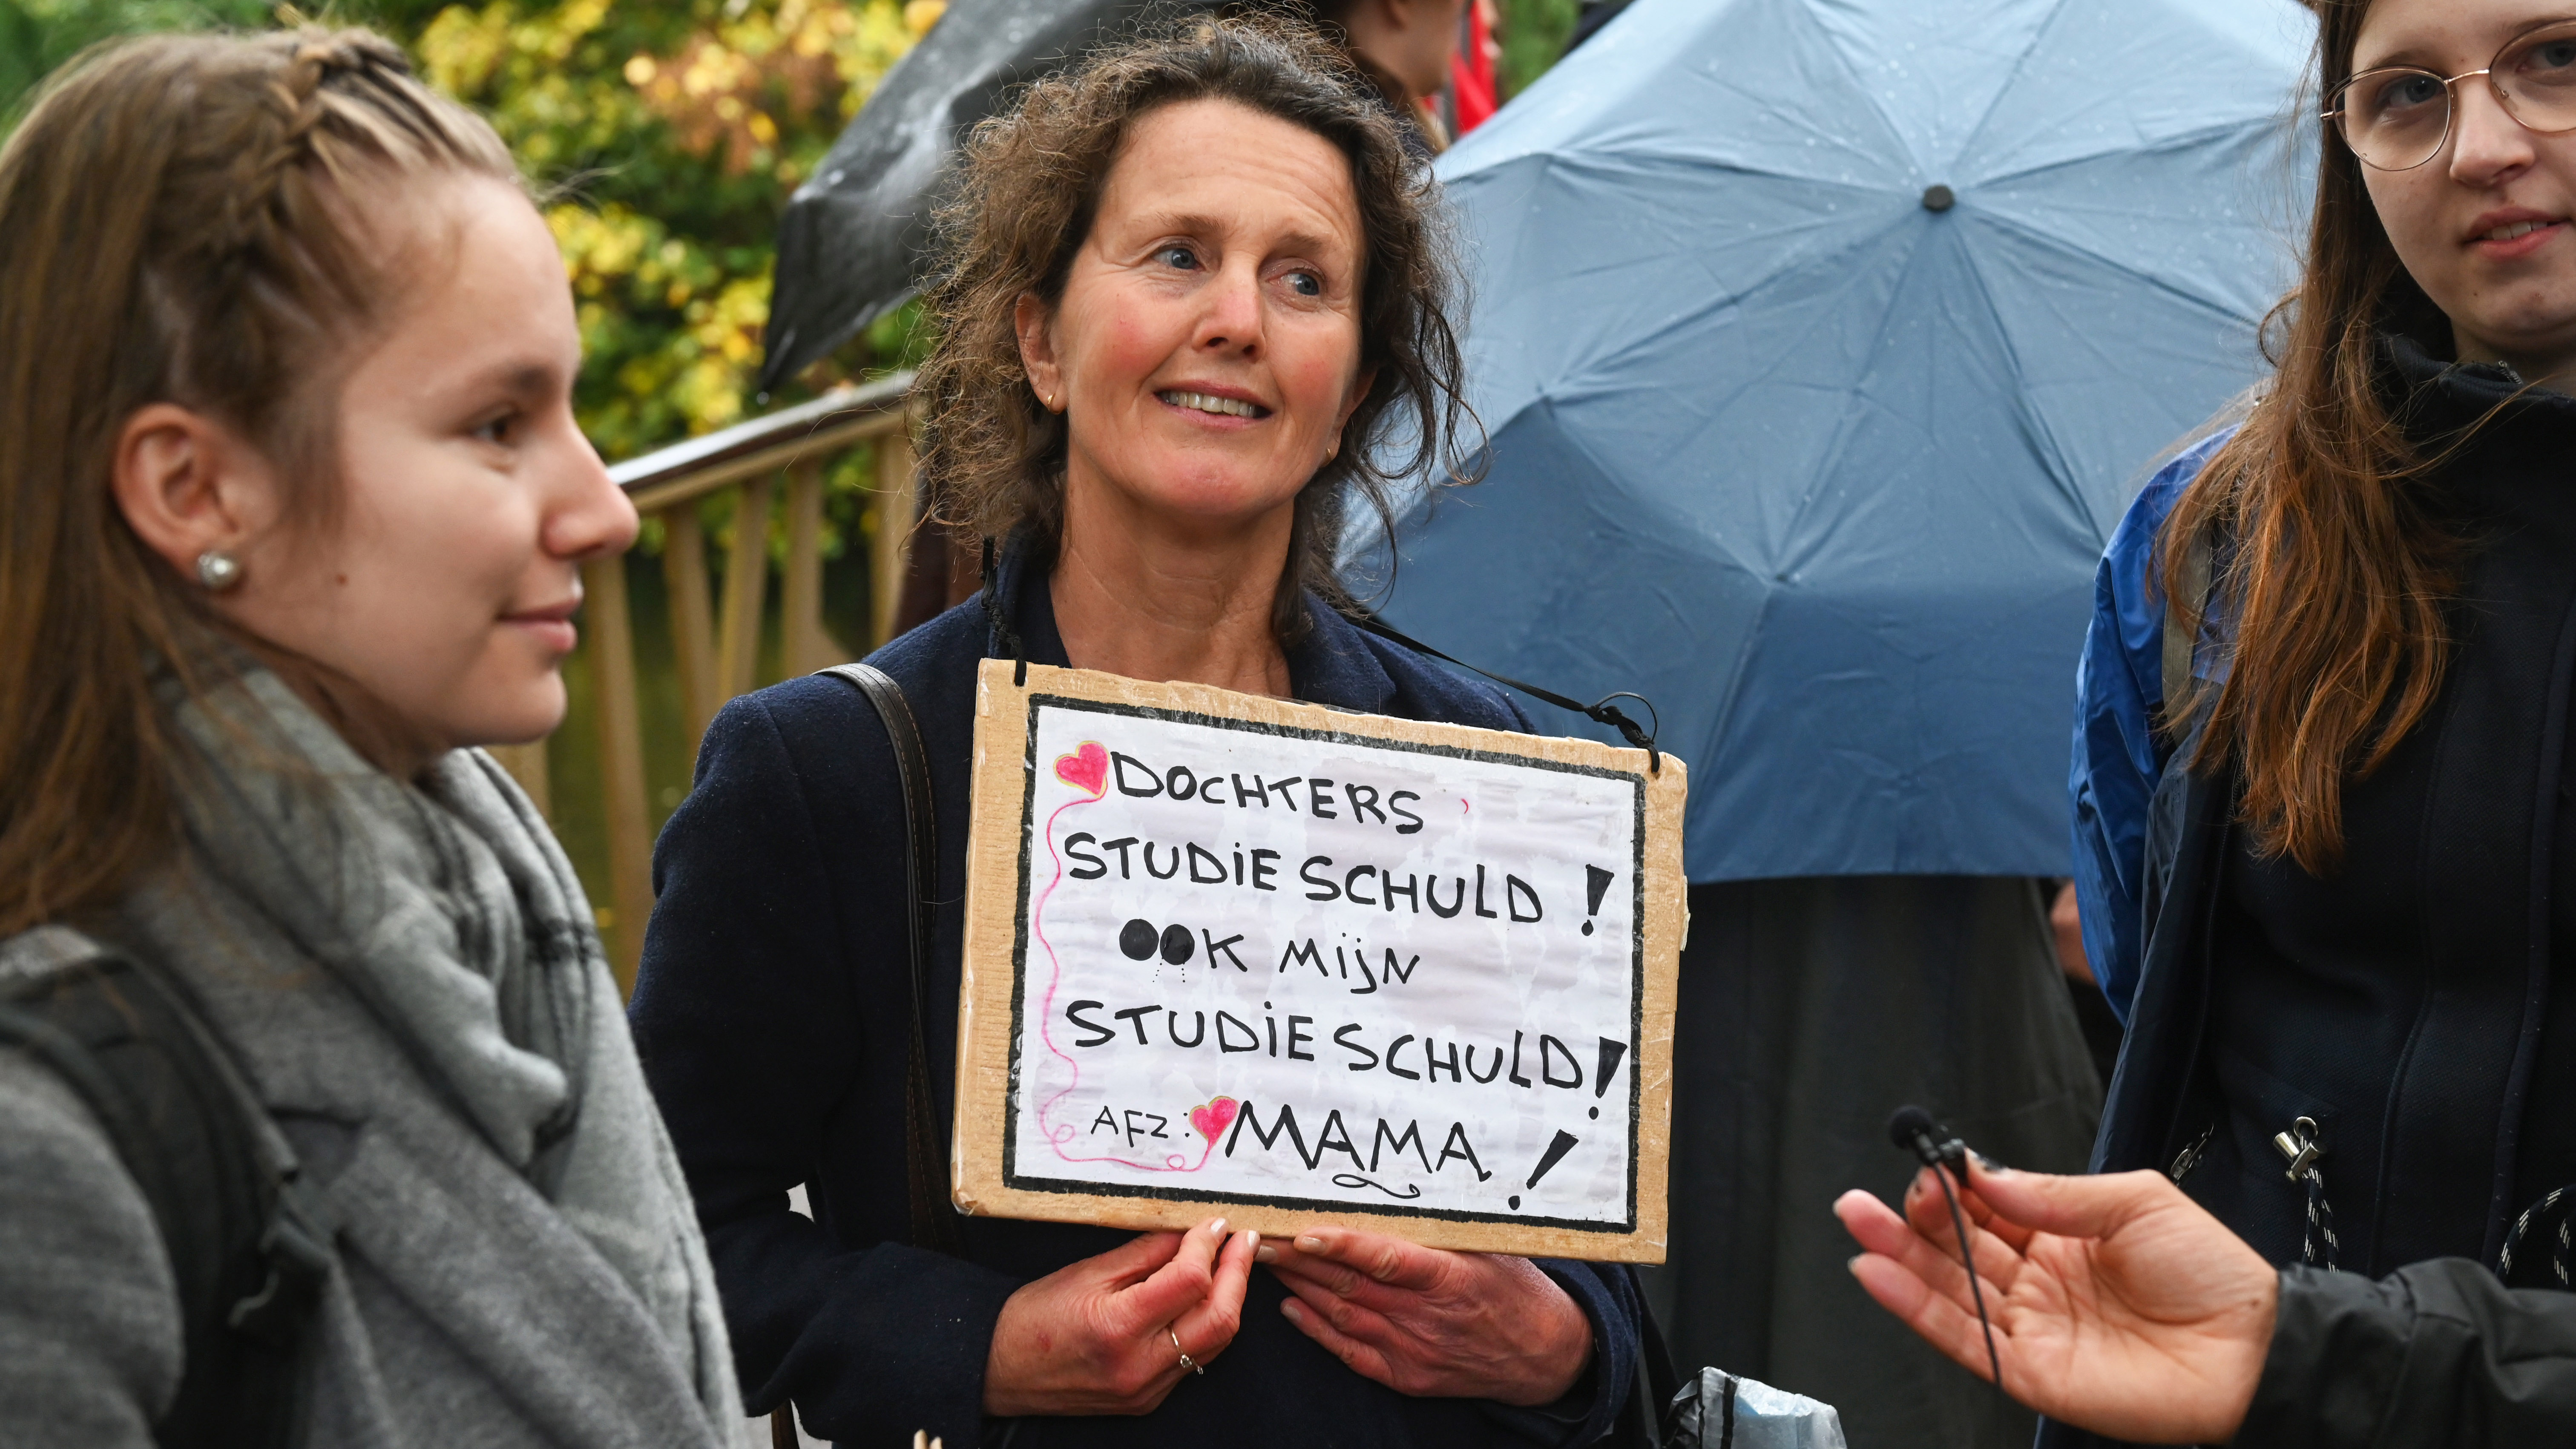 DOCHTERS
STUDIESCHULD!
OOK MIJN
STUDIESCHULD!
AFZ: MAMA!